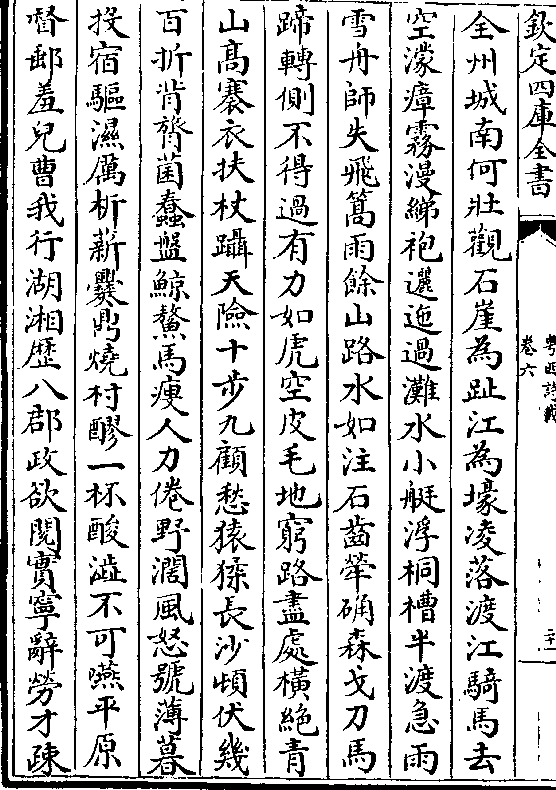 欽定四庫全書
粤西詩載
卷六
二十一
全州城南何壯觀石崖為趾江為壕凌落渡江騎馬去
空濛瘴霧漫綈袍邐迤過灘水小艇浮桐槽半渡急雨
雪舟師失飛篙雨餘山路水如注石齒犖确森戈刀馬
蹄轉側不得過有力如虎空皮毛地窮路盡處橫絶青
山高褰衣扶杖躡天險十步九顧愁猿猱長沙頓伏幾
百折背膂菌蠢盤鯨鰲馬瘦人力倦野濶風怒號薄暮
投宿驅濕厲析薪爨鼎燒村醪一杯酸澁不可嚥平原
督郵羞兒曹我行湖湘歴八郡政欲閱實寧辭勞才疎